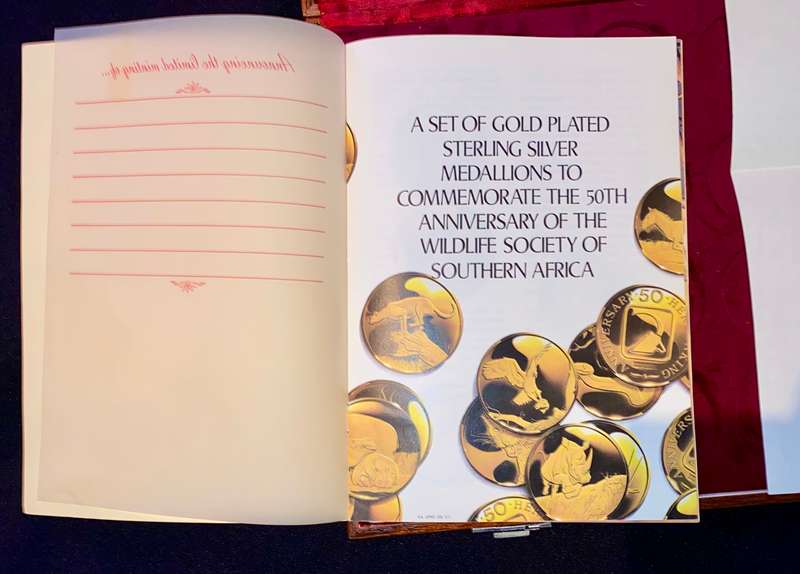 Announcing the limited minting of...
A SET OF GOLD PLATED
STERLING SILVER
MEDALLIONS TO
COMMEMORATE THE 50TH
ANNIVERSARY OF THE
WILDLIFE SOCIETY OF
SOUTHERN AFRICA
ANNIVERSARY 50
ANNIVERSARY
50